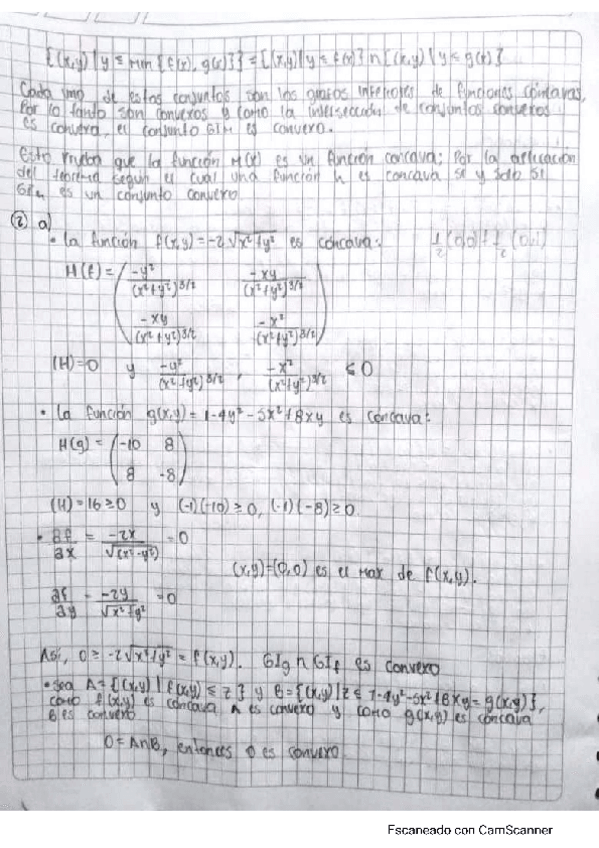 {(x,y) | y ≤ min {f(x), g(x)}} = {(x,y) | y ≤ f(x)} ∩ {(x,y) | y ≤ g(x)}
Cada uno de estos conjuntos son los inferiores de funciones cóncavas,
Por lo tanto son convexos y como la intersección de conjuntos convexos
es convexa, el conjunto GIM es convexo.
Esto prueba que la función M(x) es un función concava; Por la aplicación
del teorema según el cual una función h es concava si y solo si
GIh es un conjunto convexo
② a)
• La función f(x,y) = -2√x²+y² es cóncava: ½(0,0) + ½(0,1)
H(f) = ( -y²/(x²+y²)^3/2 -xy/(x²+y²)^3/2
-xy/(x²+y²)^3/2 -x²/(x²+y²)^3/2 )
(H)=0 y -y²/(x²+y²)^3/2 , -x²/(x²+y²)^3/2 ≤ 0
• La función g(x,y) = 1-4y²-5x²+8xy es cóncava:
H(g) = ( -10 8
8 -8 )
(H) = 16 ≥ 0 y (-1)(-10) ≥ 0, (-1)(-8) ≥ 0
• ∂f/∂x = -2x/√(x²-y²) = 0
(x,y)=(0,0) es el max de f(x,y).
∂f/∂y = -2y/√x²+y² = 0
Así, 0 ≥ -2√x²+y² = f(x,y). GIg ∩ GIf es convexo
• Sea A = {(x,y) | f(x,y) ≤ z} y B = {(x,y) | z ≤ 1-4y²-5x²+8xy = g(x,y)},
como f(x,y) es cóncava A es convexo y como g(x,y) es cóncava
B es convexo
O = A∩B, entonces O es convexo.
Escaneado con CamScanner